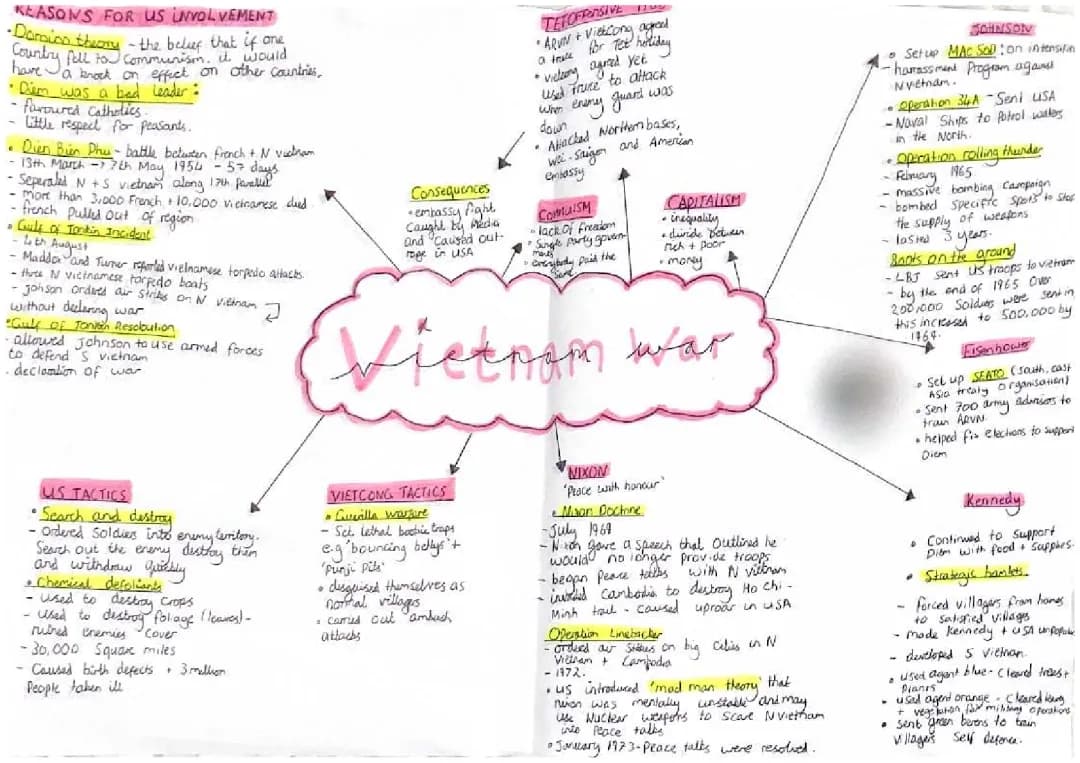 REASONS FOR US INVOLVEMENT
• Domino theory - the belief that if one
Country fell to Communism. it would
have a knock on effect on other countries.
• Diem was a bad leader:
- favoured Catholics.
- little respect for peasants.
• Dien Bien Phu - battle between french + N vietnam
- 13th March -> 7th May 1954 - 57 days
- Seperated N + S vietnam along 17th Parallel
- More than 3,000 French + 10,000 vietnamese died
- french Pulled out of region.
• Gulf of Tonkin Incident
- 4th August
- Maddox and Turner reported vietnamese torpedo attacks.
- three N vietnamese torpedo boats
- Johson ordered air strikes on N vietnam
without declaring war
• Gulf of Tonkin Resolution
- allowed Johnson to use armed forces
to defend S vietnam
- declaration of war
TET OFFENSIVE
• ARVN + VietCong agreed
a truce for Tet holiday
• vietcong agreed yet
used truce to attack
when enemy guard was
down
• Attacked Northern bases,
Saigon and American
embassy
Consequences
• embassy fight
caught by Media
and caused out-
rage in USA
COMMUISM
• lack of freedom
• Single Party govern-
ment
• everybody paid the
same
CAPITALISM
• inequality
• divide between
rich + poor
• money
JOHNSON
• Set up MAC SOG: an intensified
harrassment Program against
N vietnam.
• Operation 34A - Sent USA
Naval Ships to Patrol waters
in the North.
• Operation rolling thunder
- February 1965
- massive bombing campaign
- bombed specific spots to stop
the supply of weapons
- lasted 3 years.
Boots on the ground
- LBJ sent US troops to vietnam
- by the end of 1965 over
200,000 Soldiers were sent in
this increased to 500,000 by
1969.
Eisenhower
• Set up SEATO (South, east
Asia treaty organisation)
• Sent 700 army advisers to
train ARVN.
• helped fix elections to support
Diem
Vietnam War
US TACTICS
• Search and destroy
- Ordered Soldiers into enemy territory.
Search out the enemy destroy them
and withdraw quickly
• Chemical defoliants
- used to destroy crops
- used to destroy foliage (leaves) -
ruined enemies cover
- 30,000 Square miles
- Caused birth defects + 3 million
People taken ill
VIETCONG TACTICS
• Guerilla warfare
- Set lethal boobie traps
e.g 'bouncing bettys' +
'Punji Pits'
• disguised themselves as
normal villages
• carried out ambush
attacks
NIXON
'Peace with honour'
• Nixon Doctrine
- July 1969
- Nixon gave a speech that outlined he
would no longer provide troops
- began peace talks with N Vietnam
- invaded Cambodia to destroy Ho Chi-
Minh trail - caused uproar in USA
Operation Linebacker
- ordered air strikes on big cities in N
Vietnam + Cambodia
- 1972.
• US introduced 'mad man theory' that
nixon was mentally unstable and may
use Nuclear weapons to scare N Vietnam
into Peace talks
• January 1973 - Peace talks were resolved.
Kennedy
• Continued to support
Diem with food + supplies.
• Strategic hamlets.
- forced villagers from homes
to satisfied villages
- made Kennedy + USA unpopular
- developed S Vietnam.
• used agent blue - cleared trees +
Plants
• used agent orange - cleared
+ vegetation for military operations
• sent green berets to train
villagers self defence.